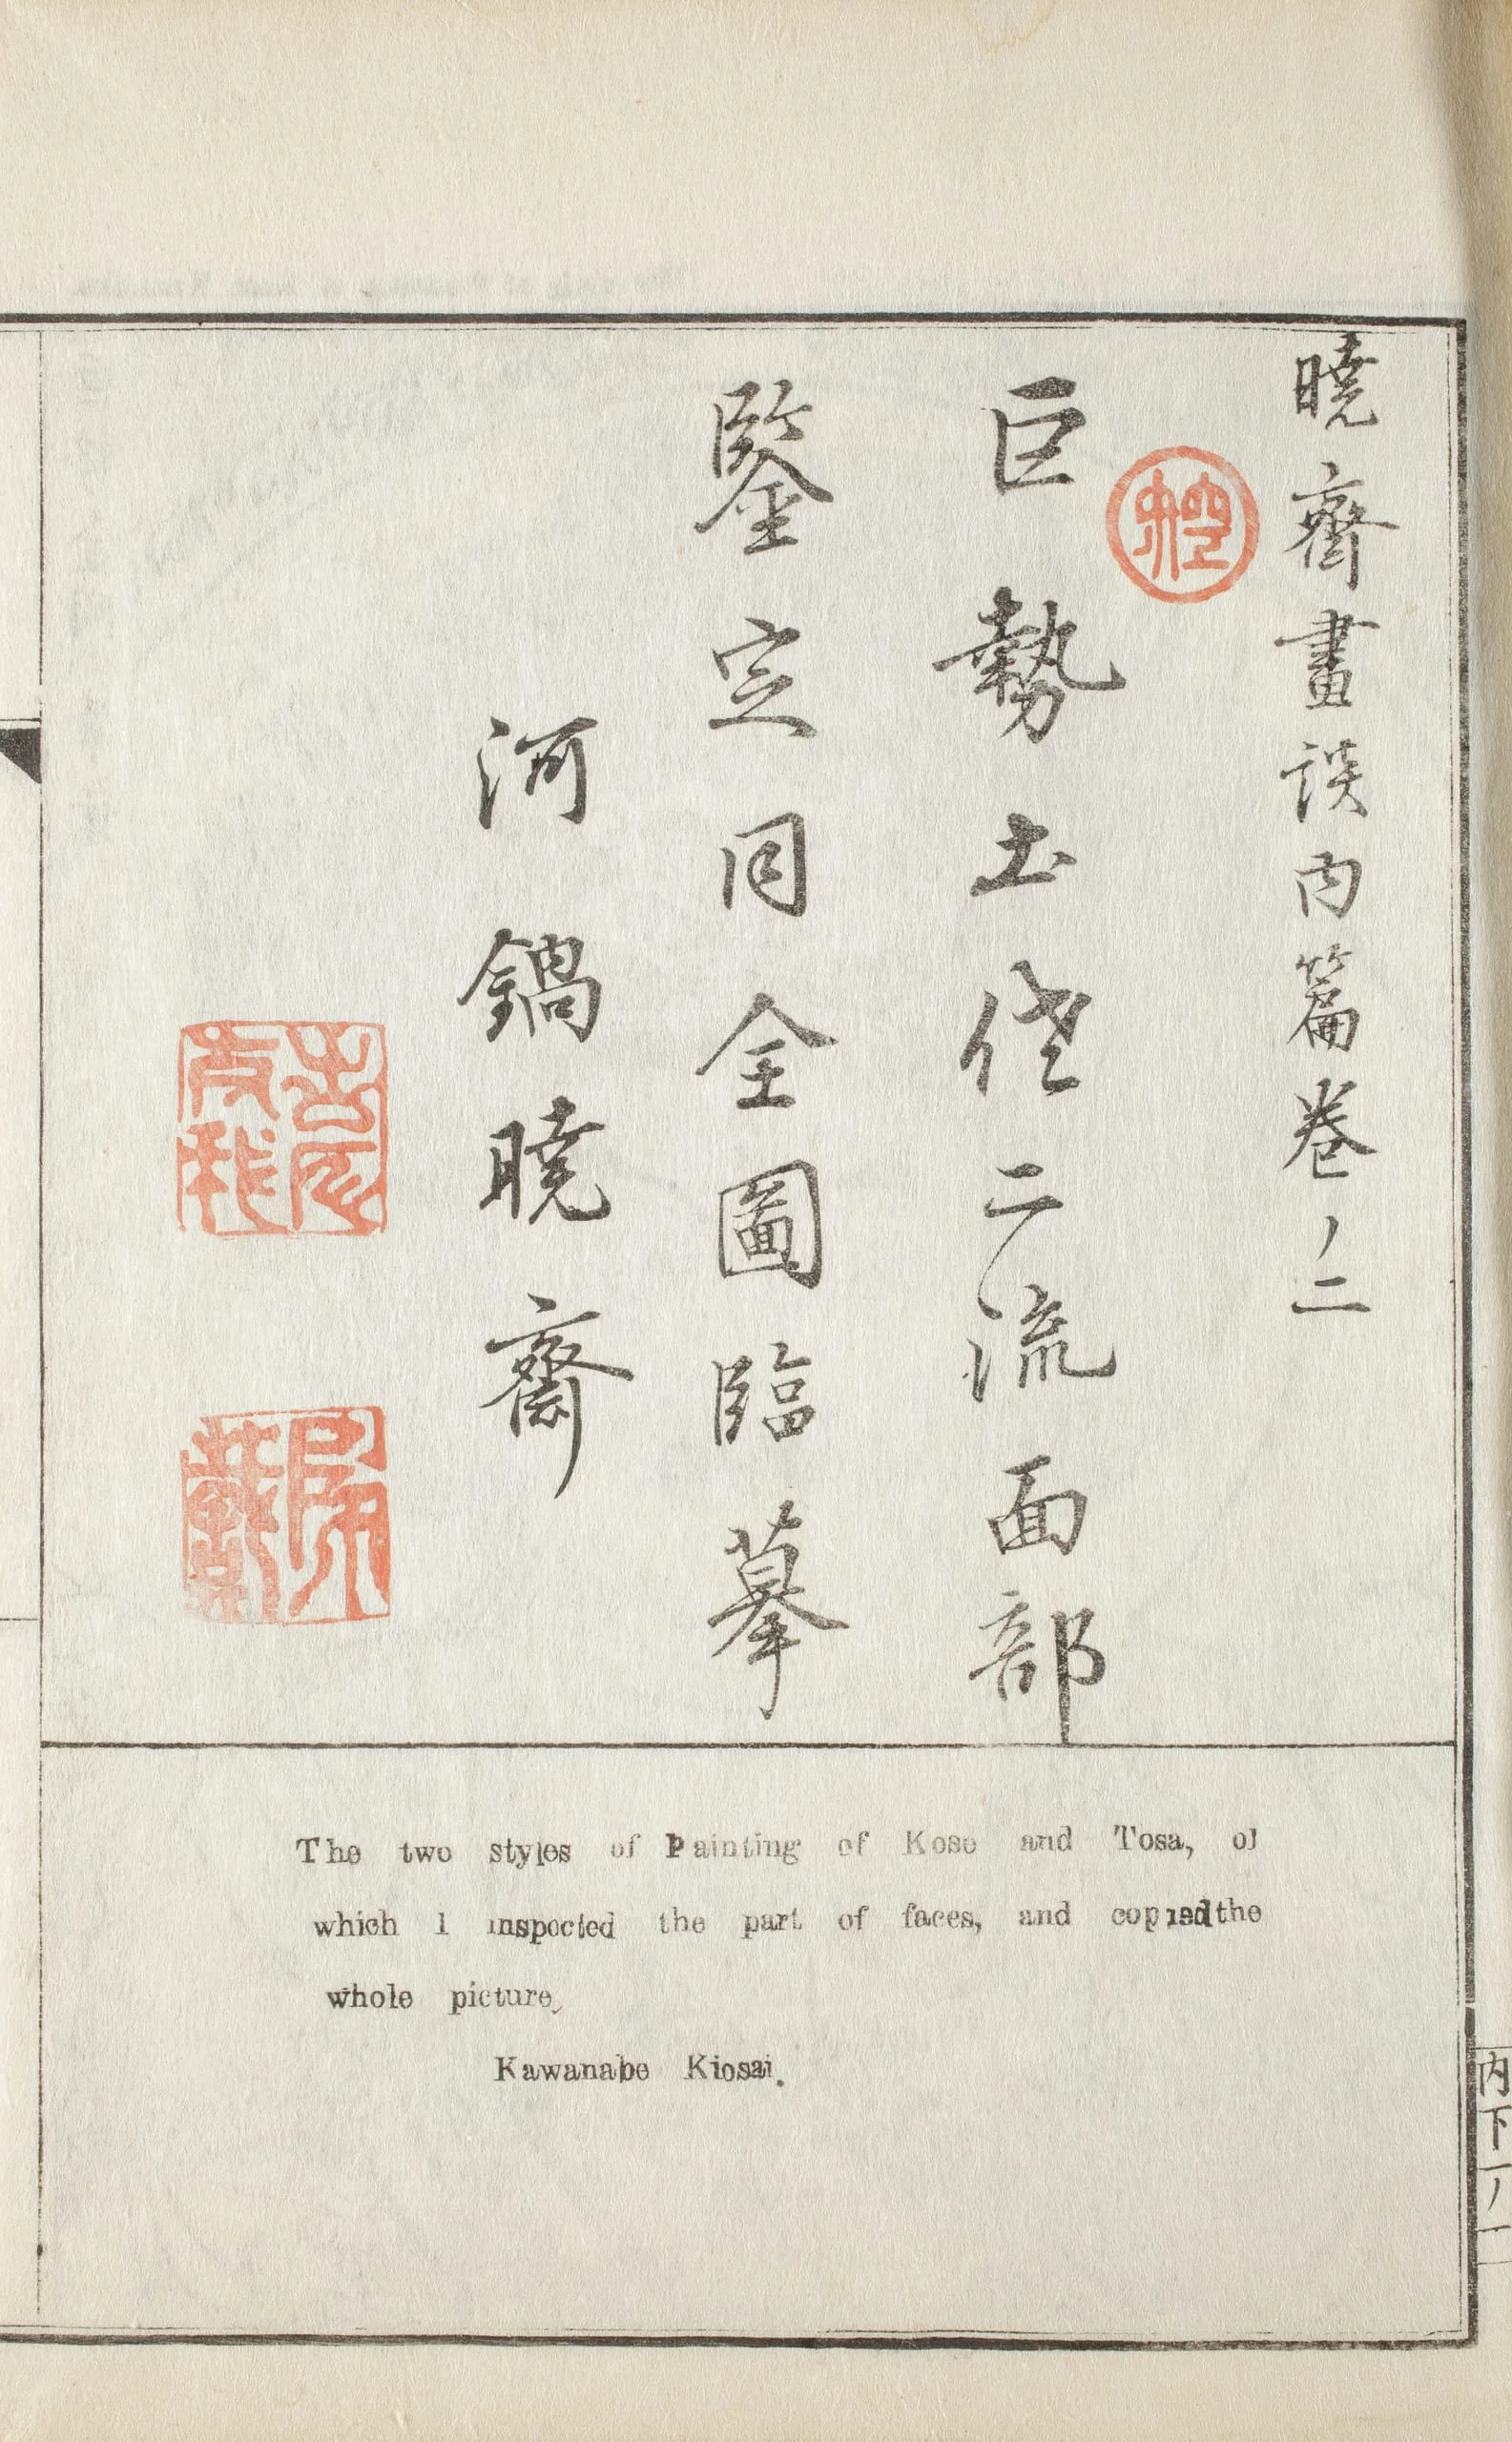 曉齋畫談内篇巻ノ二
巨勢土佐二流面部
鑒定同全圖臨摹
河鍋曉齋
The two styles of Painting of Kose and Tosa, of
which I inspected the part of faces, and copied the
whole picture,
Kawanabe Kiosai.
内下一ノ一